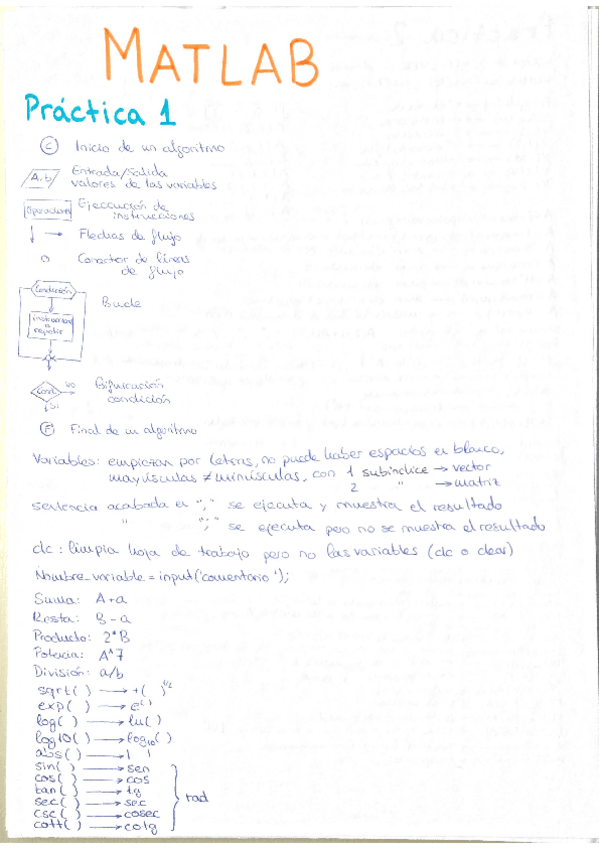 MATLAB
Práctica 1
C Inicio de un algoritmo
A,b Entrada/Salida
valores de las variables
Operaciones Ejeccución de
instrucciones
Flechas de flujo
Conector de líneas
de flujo
Condición
Bucle
instrucciones
a
repetir
Cond. NO Bifurcación
condición
SI
F Final de un algoritmo
Variables: empiezan por letras, no puede haber espacios en blanco,
mayúsculas ≠ minúsculas, con 1 subíndice → vector
2 " → matriz
sentencia acabada en "," se ejecuta y muestra el resultado
" ";" se ejecuta pero no se muestra el resultado
clc: limpia hoja de trabajo pero no las variables (clc o clear)
Nombre_variable = input('comentario');
Suma: A+a
Resta: B-a
Producto: 2*B
Potencia: A^7
División: a/b
sqrt( ) → +( )^1/2
exp( ) → e^( )
log( ) → ln( )
log10( ) → log10( )
abs( ) → | |
sin( ) → sen
cos( ) → cos
tan( ) → tg
sec( ) → sec
rad
csc( ) → cosec
cott( ) → cotg